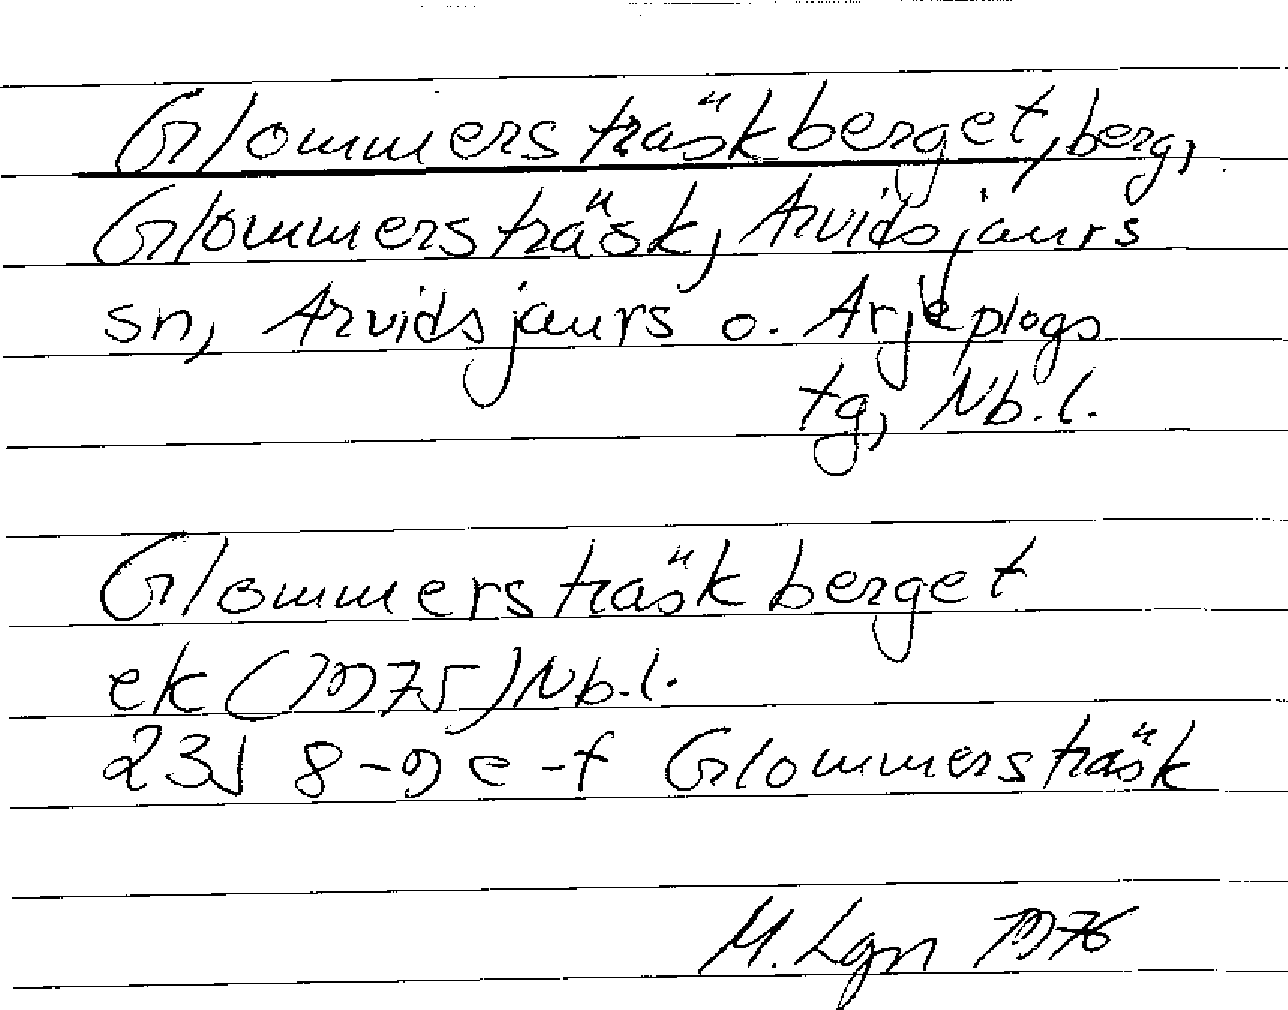 Glommersträskberget, berg,
Glommersträsk, Arvidsjaurs
sn, Arvidsjaurs o. Arjeplogs
tg, Nb.l.
Glommersträskberget
ek (1975) Nb.l.
23J 8-9 e-f Glommersträsk
M. Lgn 1976